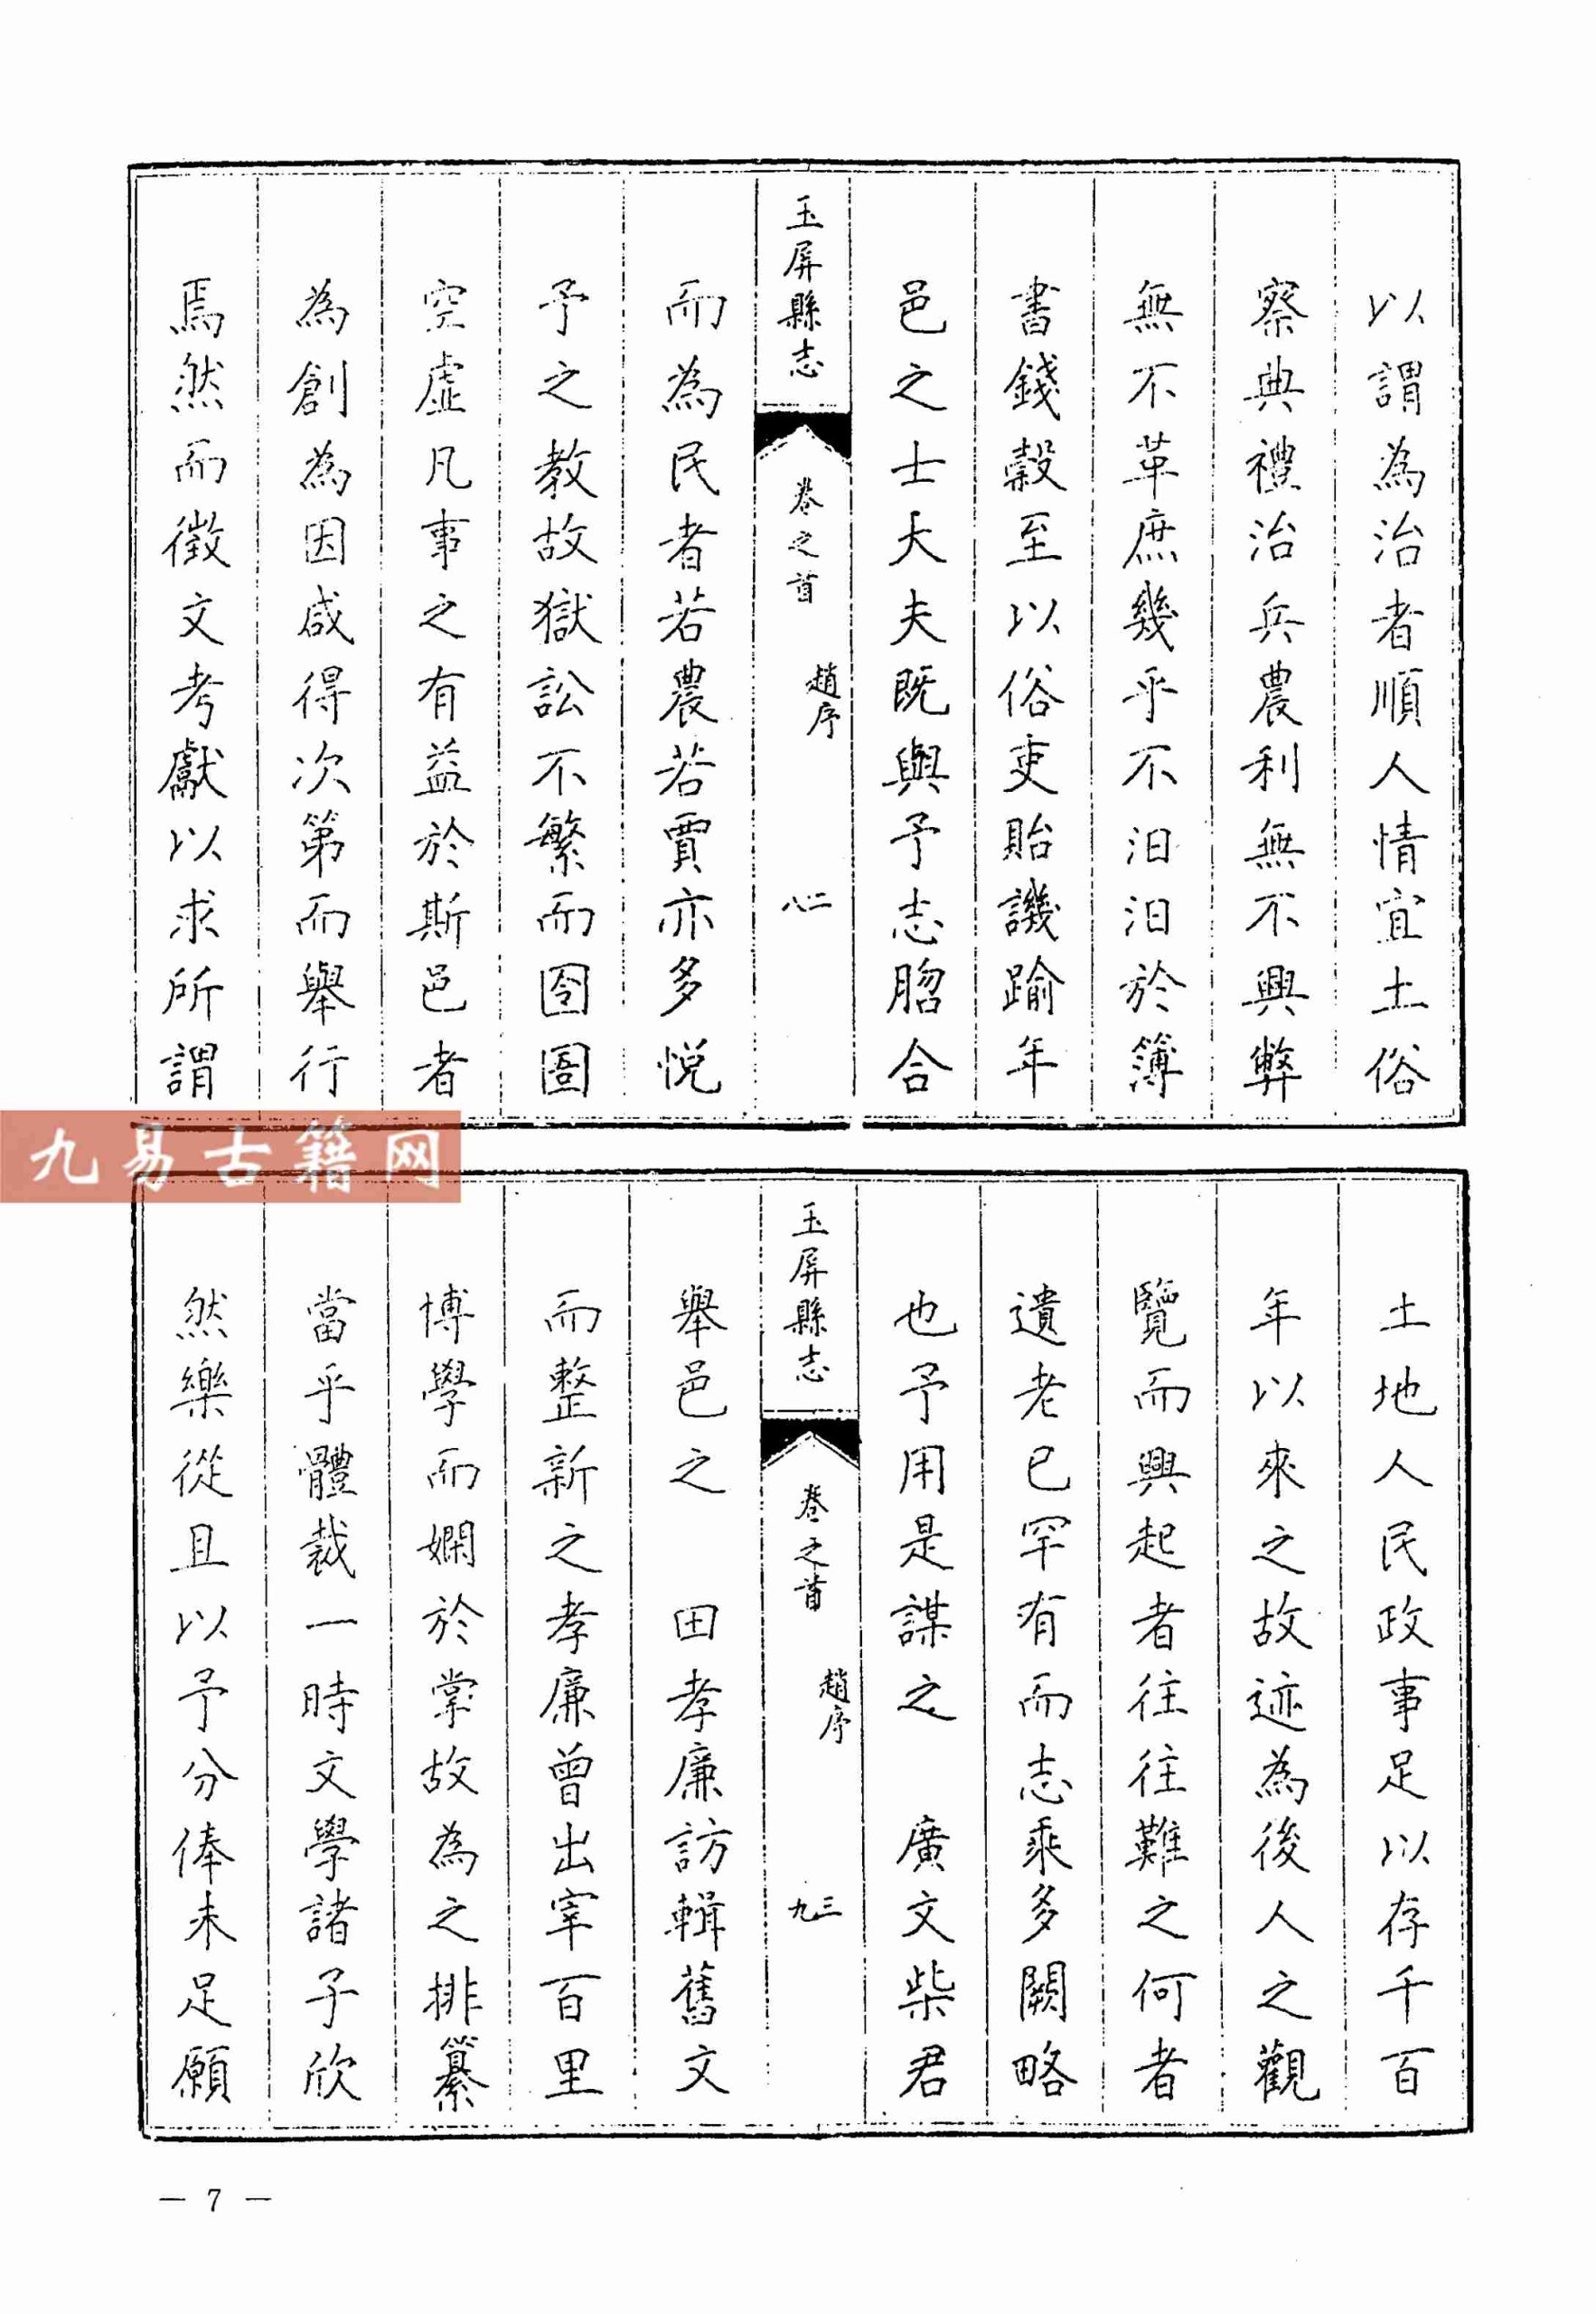 以謂為治者順人情宜土俗
察典禮治兵農利無不興弊
無不革庶幾乎不汩汩於簿
書錢穀至以俗吏貽譏踰年
邑之士大夫既與予志脗合
玉屏縣志 卷之首 趙序 二八
而為民者若農若賈亦多悅
予之教故獄訟不繁而囹圄
空虛凡事之有益於斯邑者
為創為因咸得次第而舉行
焉然而徵文考獻以求所謂
土地人民政事足以存千百
年以來之故迹為後人之觀
覽而興起者往往難之何者
遺老已罕有而志乘多闕略
也予用是謀之 廣文柴君
玉屏縣志 卷之首 趙序 三九
舉邑之 田孝廉訪輯舊文
而整新之孝廉曾出宰百里
博學而嫻於掌故為之排纂
當乎體裁一時文學諸子欣
然樂從且以予分俸未足願
九易古籍网
— 7 —